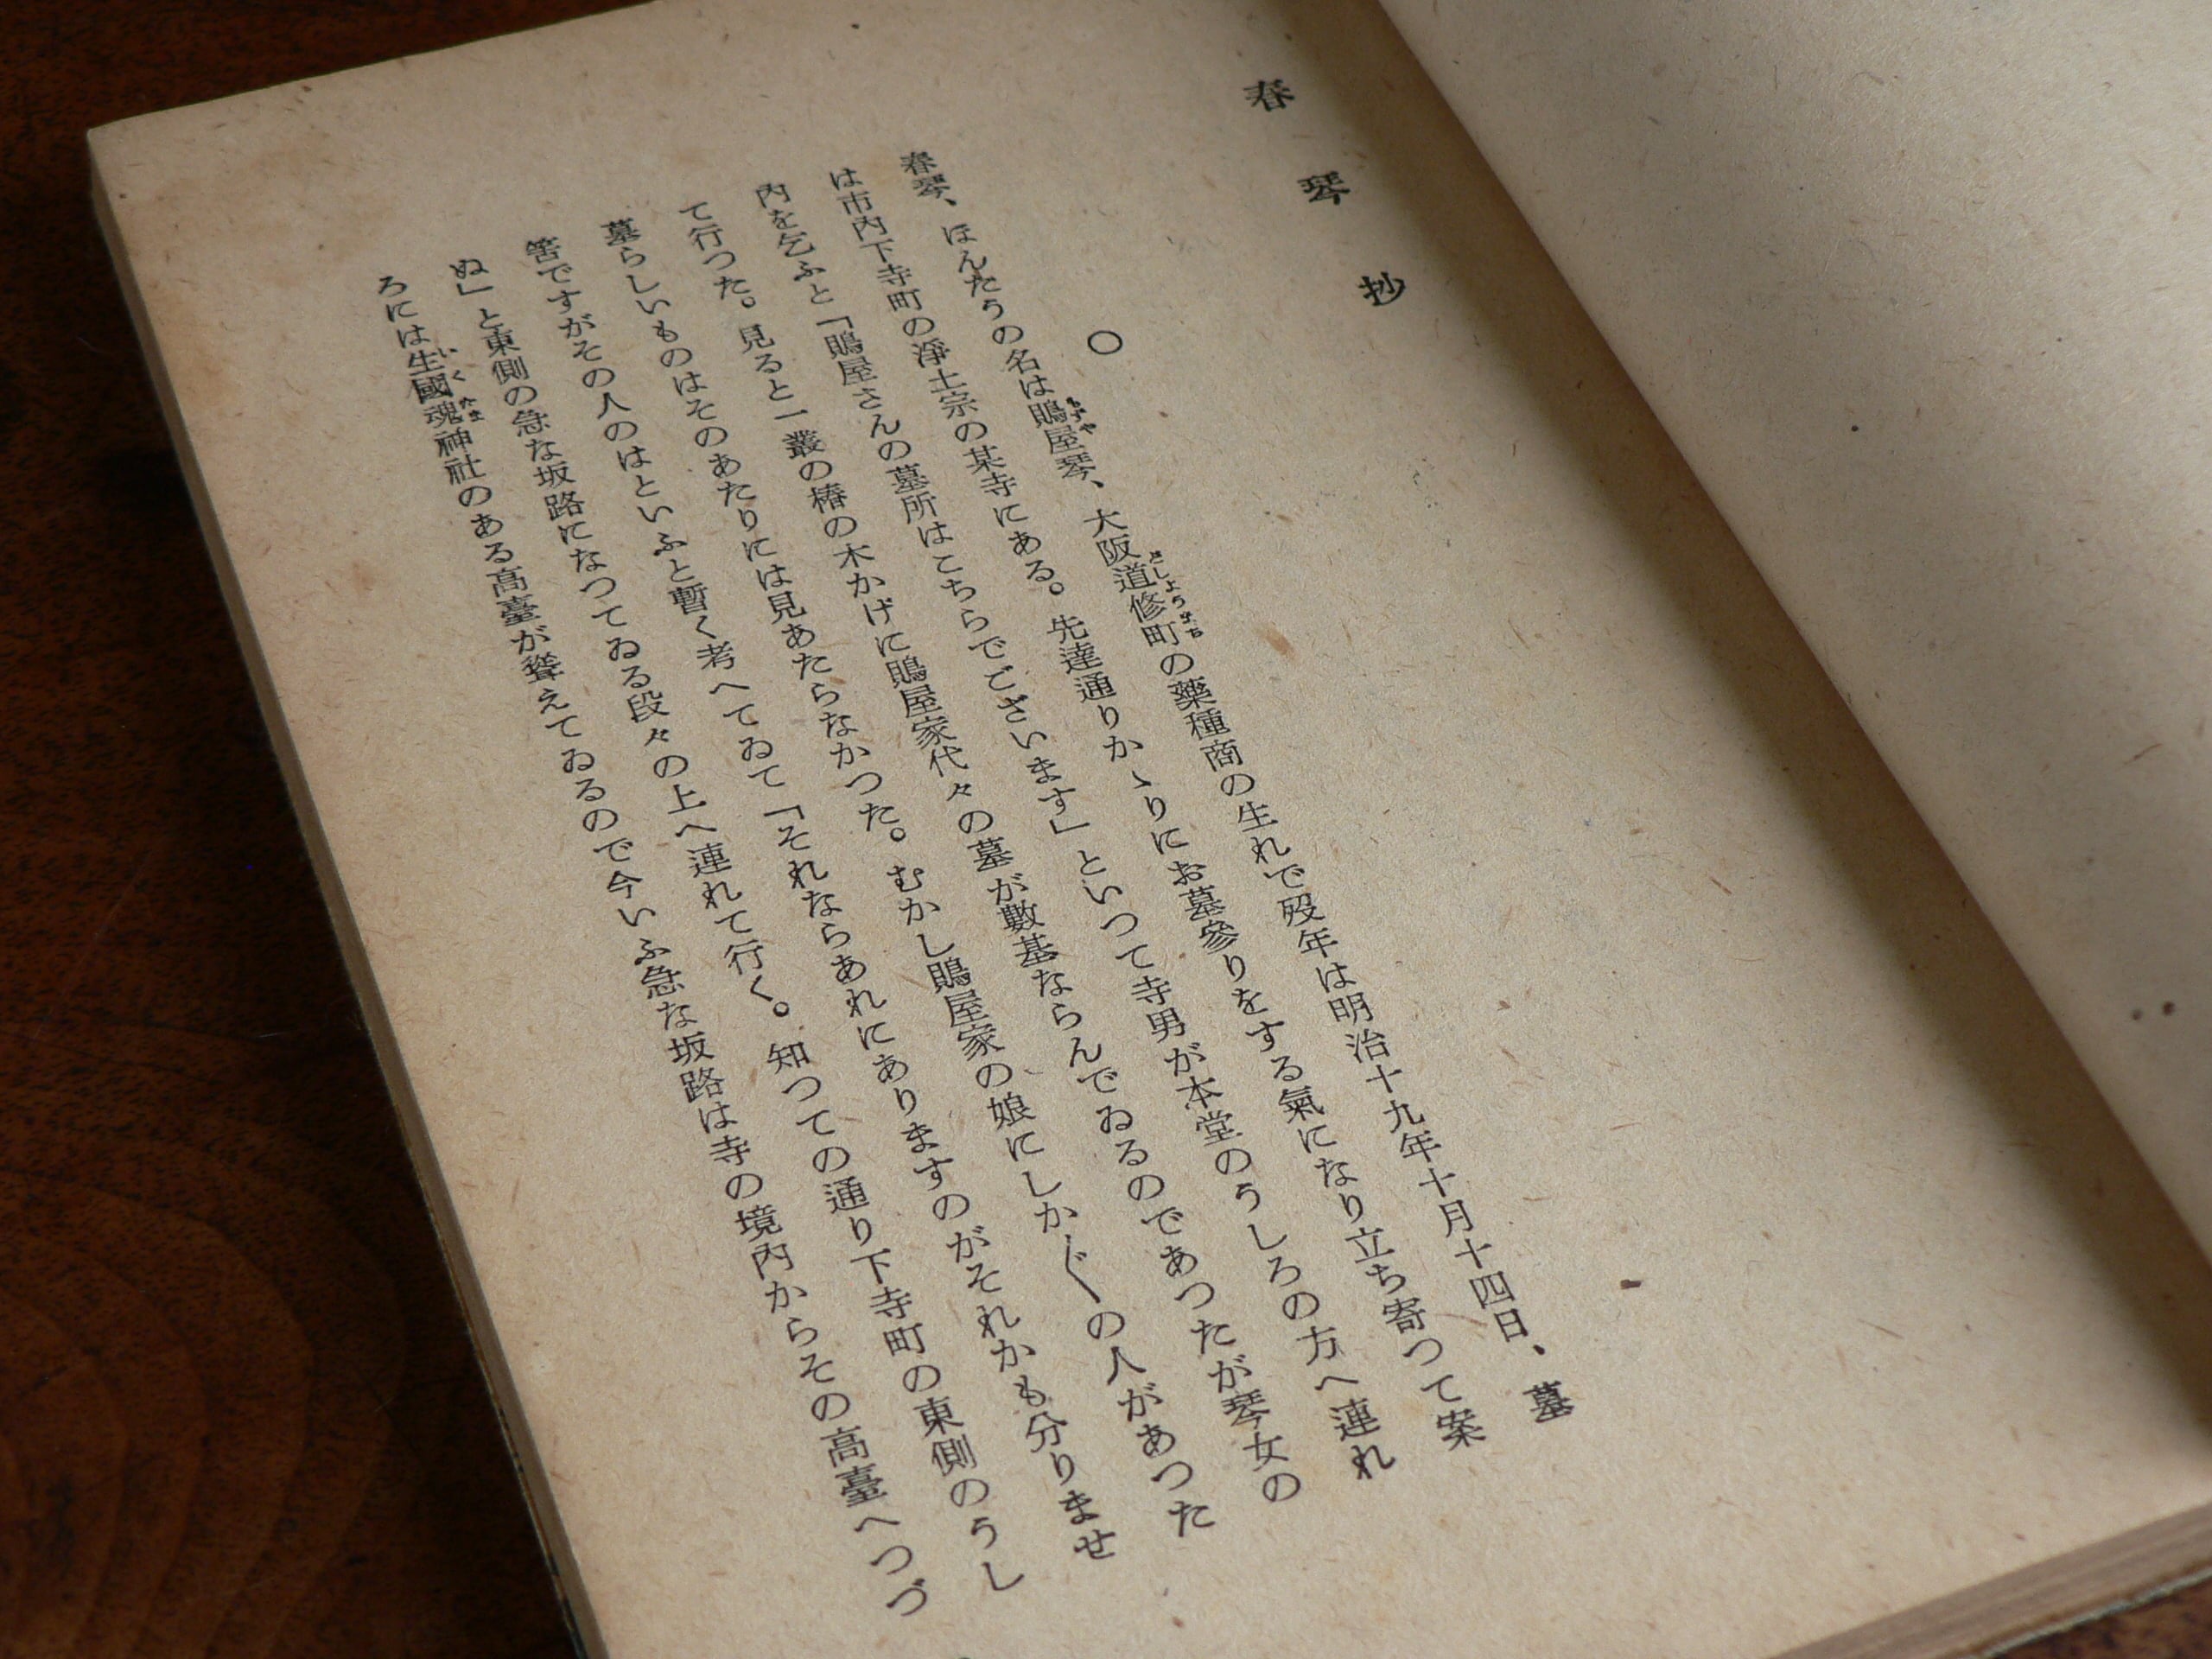 春琴抄
○
春琴、ほんたうの名は鵙屋琴、大阪道修町の藥種商の生れで歿年は明治十九年十月十四日、墓
は市内下寺町の淨土宗の某寺にある。先達通りかゝりにお墓參りをする氣になり立ち寄つて案
内を乞ふと「鵙屋さんの墓所はこちらでございます」といつて寺男が本堂のうしろの方へ連れ
て行つた。見ると一叢の椿の木かげに鵙屋家代々の墓が數基ならんでゐるのであつたが琴女の
墓らしいものはそのあたりには見あたらなかつた。むかし鵙屋家の娘にしか〴〵の人があつた
筈ですがその人のはといふと暫く考へてゐて「それならあれにありますのがそれかも分りませ
ぬ」と東側の急な坂路になつてゐる段々の上へ連れて行く。知つての通り下寺町の東側のうし
ろには生國魂神社のある高臺が聳えてゐるので今いふ急な坂路は寺の境内からその高臺へつづ